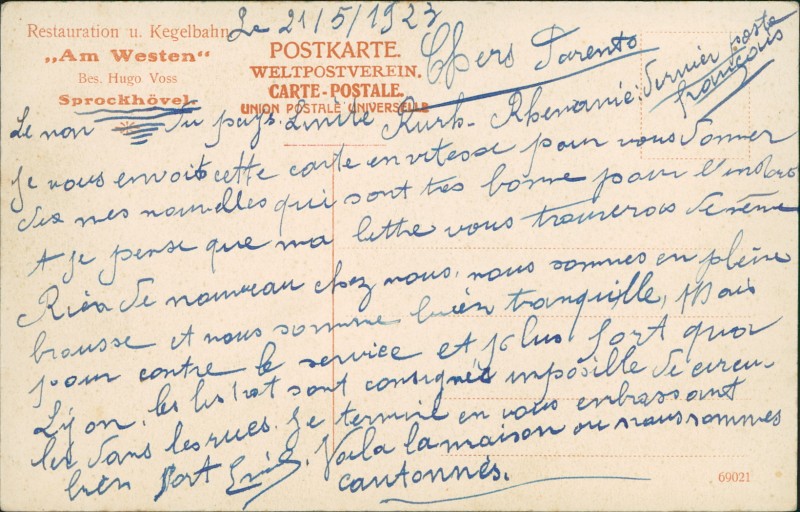 Restauration u. Kegelbahn
„Am Westen“
Bes. Hugo Voss
Sprockhövel.
Le 21/5/1923
POSTKARTE.
WELTPOSTVEREIN.
CARTE-POSTALE.
UNION POSTALE UNIVERSELLE
Chers Parents
Le nom du pays Limite Rurh-Rhenanie: dernier poste
français
Je vous envois cette carte en vitesse pour vous donner
des mes nouvelles qui sont tres bonne pour l'instant
et je pense que ma lettre vous trouverois de même
Rien de nouveau chez nous, nous sommes en pleine
brousse et nous somme bien tranquille, Mais
pour contre le service et plus fort qua
Lyon, les sont consignés imposible de circu-
ler dans les rues. Je termine en vous enbrassant
bien fort Emile. Voila la maison ou nous sommes
cantonnés.
69021